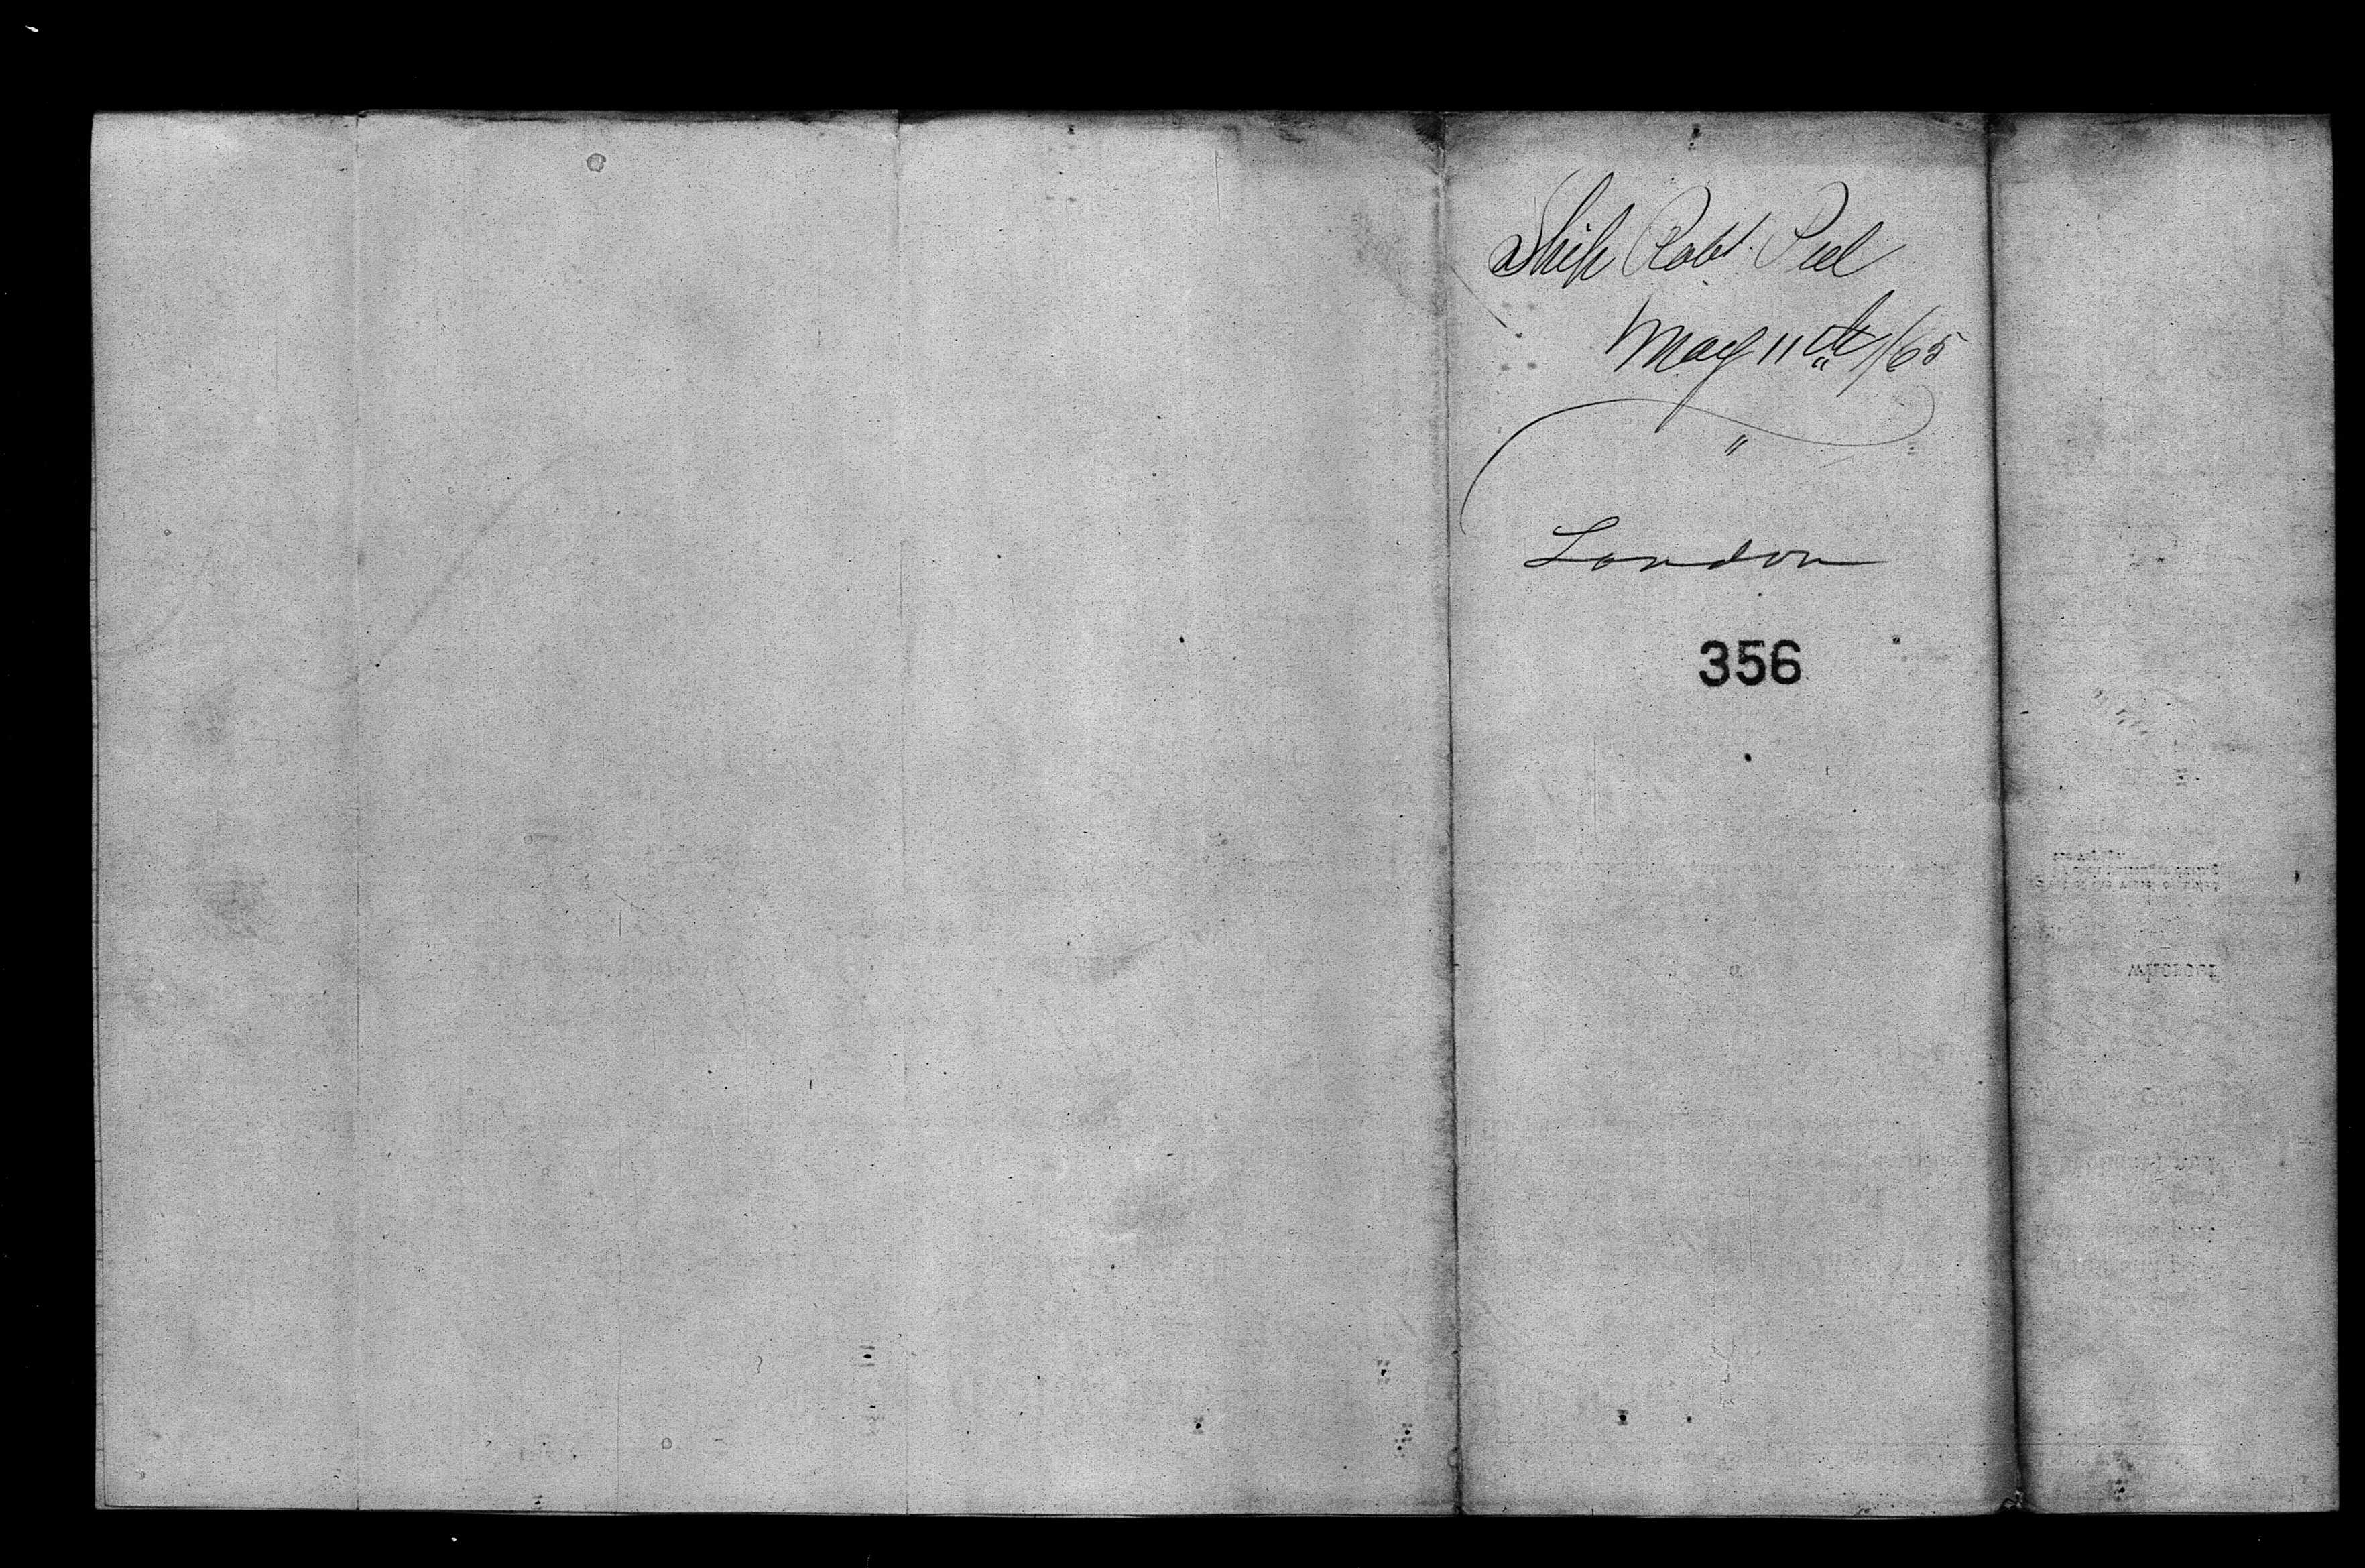 Ship Robt. Peel
May 11th/65
"
London
356